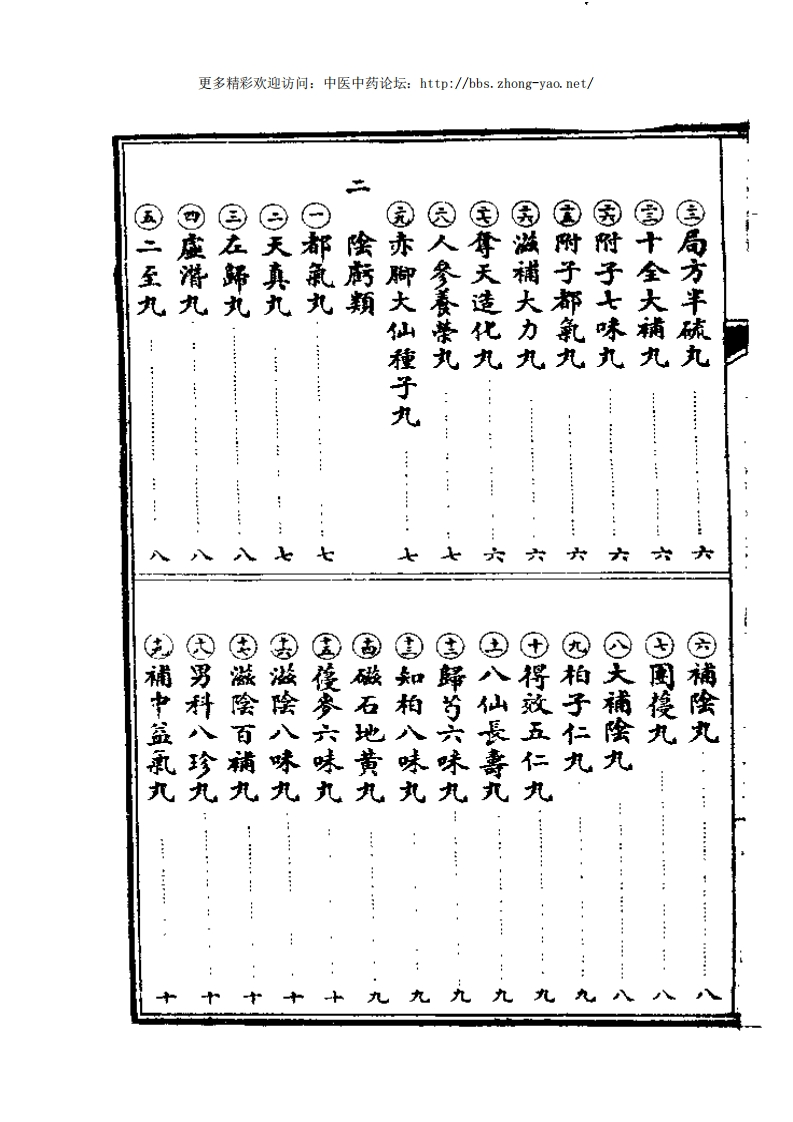 更多精彩欢迎访问：中医中药论坛：http://bbs.zhong-yao.net/
二二 局方半硫丸 六
二三 十全大補丸 六
二四 附子七味丸 六
二五 附子都氣丸 六
二六 滋補大力丸 六
二七 奪天造化丸 六
二八 人參養榮丸 七
二九 赤腳大仙種子丸 七
二 陰虧類
一 都氣丸 七
二 天真丸 七
三 左歸丸 八
四 虛潛丸 八
五 二至丸 八
六 補陰丸 八
七 團葠丸 八
八 大補陰丸 八
九 柏子仁丸 九
十 得效五仁丸 九
十一 八仙長壽丸 九
十二 歸芍六味丸 九
十三 知柏八味丸 九
十四 磁石地黄丸 九
十五 葠麥六味丸 十
十六 滋陰八味丸 十
十七 滋陰百補丸 十
十八 男科八珍丸 十
十九 補中益氣丸 十